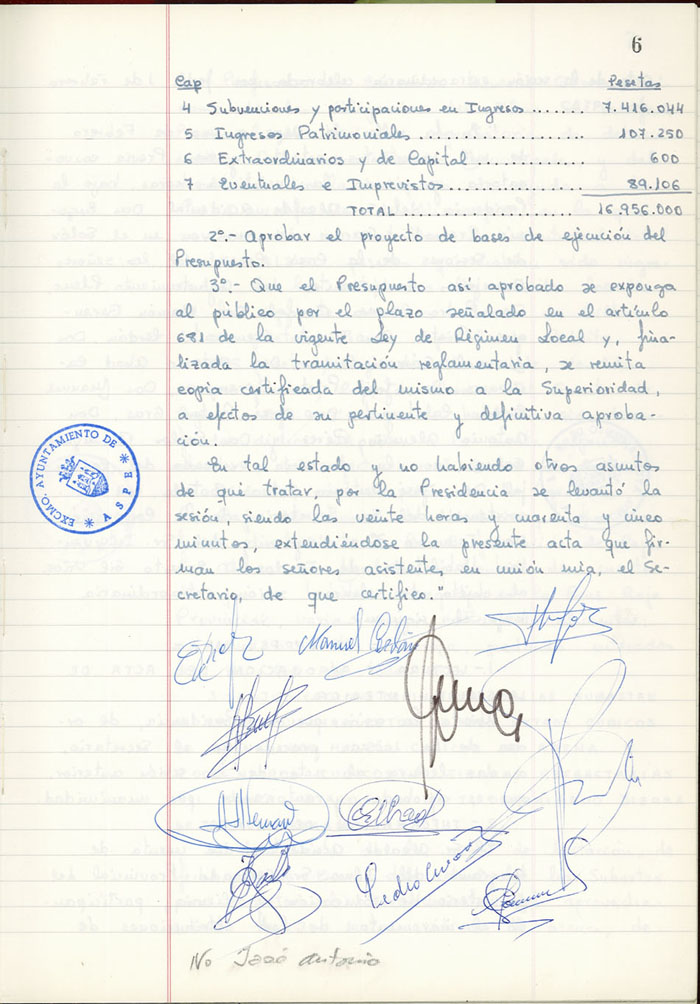 6
Cap Pesetas
4 Subvenciones y participaciones en Ingresos ....... 7.416.044
5 Ingresos Patrimoniales ................... 107.250
6 Extraordinarios y de Capital .............. 600
7 Eventuales e Imprevistos .................. 89.106
TOTAL ............... 16.956.000
2º.- Aprobar el proyecto de bases de ejecución del
Presupuesto.
3º.- Que el Presupuesto así aprobado se exponga
al público por el plazo señalado en el artículo
681 de la vigente Ley de Régimen Local y, fina-
lizada la tramitación reglamentaria, se remita
copia certificada del mismo a la Superioridad,
a efectos de su pertinente y definitiva aproba-
ción.
En tal estado y no habiendo otros asuntos
de qué tratar, por la Presidencia se levantó la
sesión, siendo las veinte horas y cuarenta y cinco
minutos, extendiéndose la presente acta que fir-
man los señores asistentes, en unión mía, el Se-
cretario, de que certifico."
EXCMO. AYUNTAMIENTO DE ASPE
Manuel
Pedro
No José Antonio